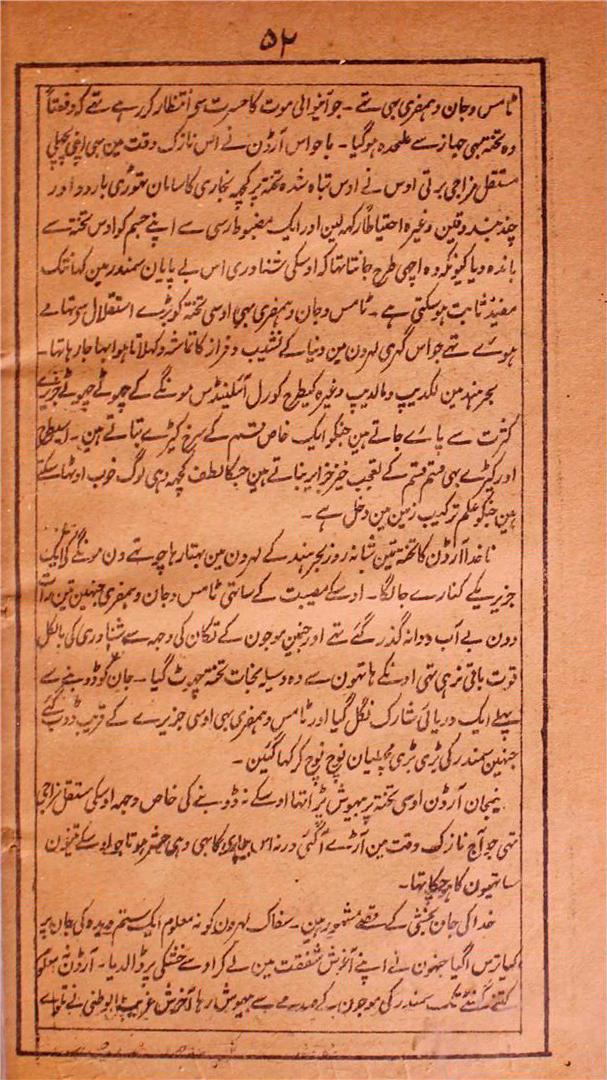 ۵۲
ٹامس و جان و ہمفری بہی تہے ۔ جو آنیوالی موت کا حسرت سے انتظار کر رہے تہے کہ دفعتاً
وہ تختہ بہی جہاز سے علحدہ ہوگیا ۔ باحواس آرڈن نے اس نازک وقت مین بہی اپنی پچہلی
مستقل مزاجی برتی اوس نے اوس تباہ شدہ تختہ پر کچہہ نجاری کا سامان تہوڑی بارود اور
چند بندوقین وغیرہ احتیاطاً رکہہ لین اور ایک مضبوط رسی سے اپنے جسم کو اوس تختہ سے
باندہ دیا کیونکہ وہ اچہی طرح جانتا تہا کہ اوسکی شناوری اس بے پایان سمندر مین کہانتک
مفید ثابت ہوسکتی ہے ۔ ٹامس و جان و ہمفری بہی اوسی تختہ کو بڑے استقلال سے تہامے
ہوے تہے جو اس گہری لہرون مین دنیا کے نشیب و فراز کا تماشہ دکہلاتا ہوا بہا جا رہا تہا ۔
بحر ہند مین لکدیپ و مالدیپ وغیرہ کیطرح کورل آئلینڈس مونگے کے چہوٹے چہوٹے جزیرے
کثرت سے پاے جاتے ہین جنکو ایک خاص قسم کے سرخ کیڑے بناتے ہین ۔ اسیطرح
اور کیڑے بہی قسم قسم کے تعجب خیز جزایر بناتے ہین جسکا لطف کچہہ وہی لوگ خوب اوٹہا سکتے
ہین جنکو علم ترکیب زمین مین دخل ہے ۔
ناخدا آرڈن کا تختہ تین شبانہ روز بحر ہند کے لہرون مین بہتا رہا چوتہے دن مونگے کے ایک
جزیرے کے کنارے جا لگا ۔ اوسکے مصیبت کے ساتہی ٹامس و جان و ہمفری جنہین تین رات
دن بے آب و دانہ گذر گئے تہے اور جنہین موجون کے تکان کی وجہ سے شناوری کی بالکل
قوت باقی نرہی تہی اونکے ہاتہون سے وہ وسیلہ نجات تختہ چہوٹ گیا ۔ جان کو ڈوبنے سے
پہلے ایک دریائی شارک نگل گیا اور ٹامس و ہمفری بہی اوسی جزیرے کے قریب ڈوب گئے
جنہین سمندر کی بڑی بڑی مچہلیان نوچ نوچ کر کہا گئین ۔
نیمجان آرڈن اوسی تختہ پر بیہوش پڑا تہا اوسکے نہ ڈوبنے کی خاص وجہ اوسکی مستقل مزاجی
تہی جو آج نازک وقت مین آڑے آگئی ورنہ اس بیچارے کا بہی وہی حشر ہوتا جو اوسکے تینون
ساتہیون کا ہوچکا تہا ۔
خدا کی جان بخشی کے قصے مشہور ہین ۔ سفاک لہرون کو نہ معلوم ایک ستم دیدہ کی جان پر
کیا ترس آگیا جنہون نے اپنے آغوش شفقت مین لے کر اوسے خشکی پر ڈالدیا ۔ آرڈن نہ معلوم
کتنے گہنٹے تک سمندر کی موجون کے صدمے سے بیہوش رہا آخرش غریب الوطنی نے تلوے